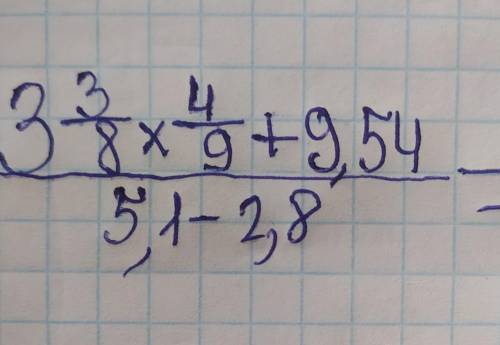 3 3/8 × 4/9 + 9,54
5,1 - 2,8
=